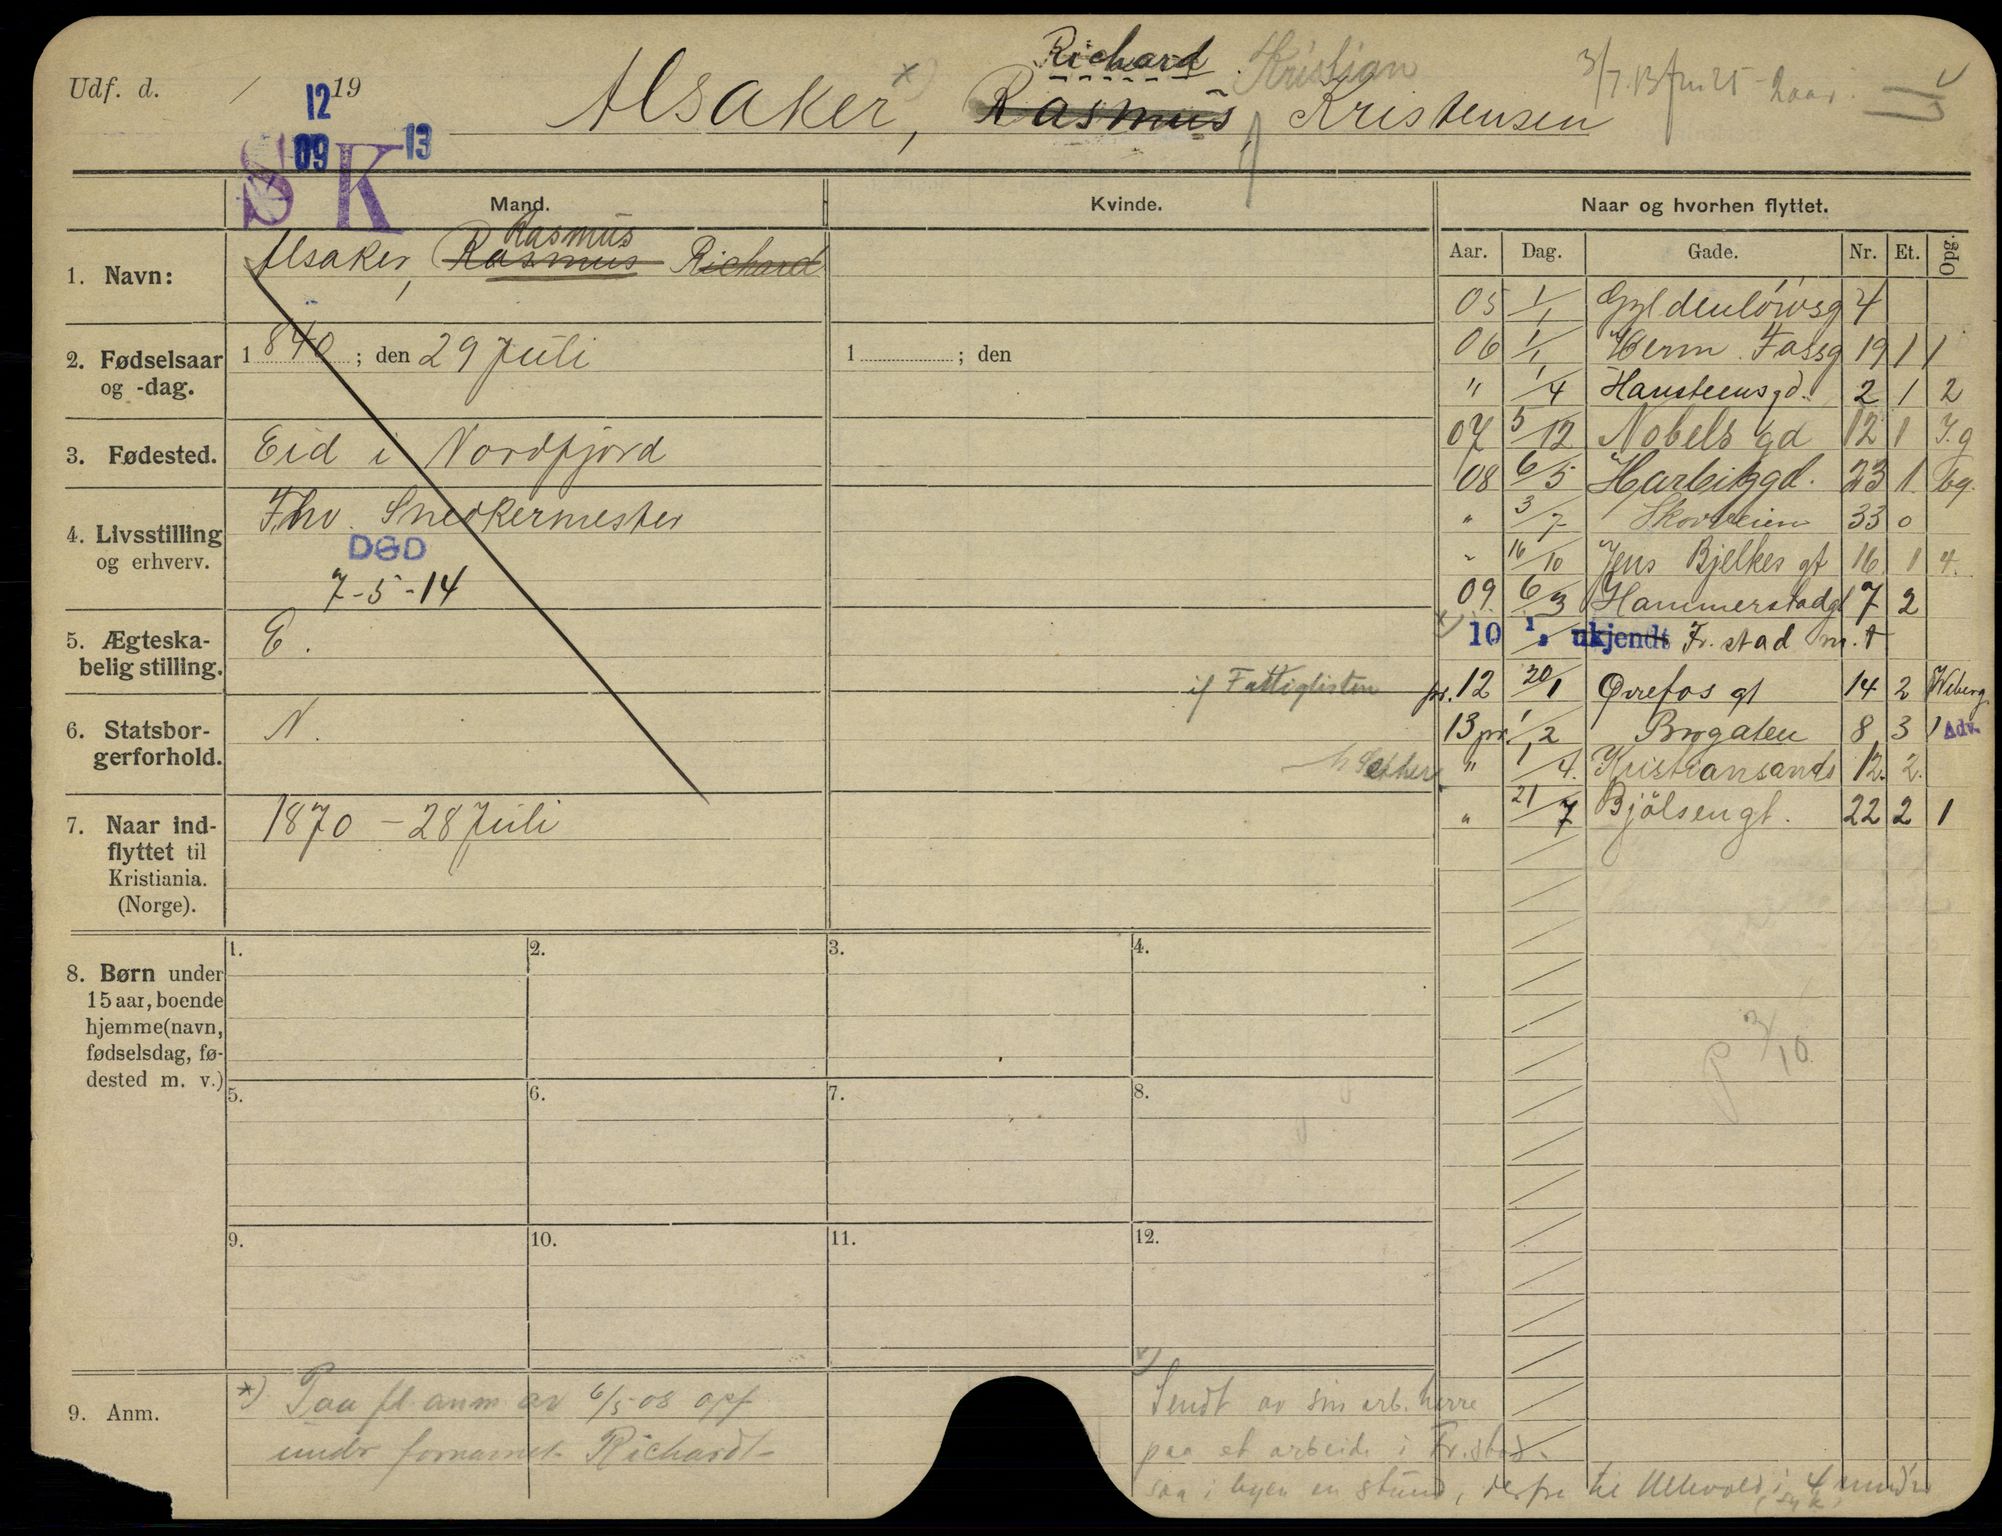 Udf. d. / 19
12
09 13
S K
Alsaker, *) Rasmus, Kristensen
Richard Kristian
3/7.13
Mand.
Kvinde.
Naar og hvorhen flyttet.
Aar. Dag. Gade. Nr. Et. Opg.
1. Navn:
Rasmus
Alsaker, Rasmus Richard
2. Fødselsaar
og -dag.
1 840; den 29 Juli
1 ; den
3. Fødested.
Eid i Nordfjord
4. Livsstilling
og erhverv.
Fhv. Snedkermester
DØD
7-5-14
5. Ægteska-
belig stilling.
E.
if Fattiglisten
6. Statsbor-
gerforhold.
N.
7. Naar ind-
flyttet til
Kristiania.
(Norge).
1870 - 28 Juli
05 1/1 Gyldenløwsg 4
06 1/1 Herm. Fossg 19 1 1
" 1/4 Hansteensgd. 2 1 2
07 5/12 Nobels gd 12 1 I.g
08 6/5 Harbitzgd. 23 1. bg.
" 3/7 Skovveien 33 0
" 16/10 Jens Bjelkes gt 16 1 4.
09 6/3 Hammerstadgt 7 2
*) 10 1/2 ukjendt Fr.stad m.t
pr. 12 20/1 Øvrefos gt 14 2 Wiberg
13 pr. 1/2 Brogaten 8 3 1 Adv.
" 1/4. Kristiansands 12. 2.
" 21/7 Bjölsengt. 22 2 1
8. Børn under
15 aar, boende
hjemme (navn,
fødselsdag, fø-
dested m. v.)
1. 2. 3. 4.
5. 6. 7. 8.
9. 10. 11. 12.
3/10
9. Anm.
*) Paa fl. anm av 6/5 08 opf
under fornavnet Richardt
*)
Sendt av sin arb. herre
paa et arbeide i Fr.stad.
saa i byen en stund, derfra til Ullevold, i 4 mnd'r
syk